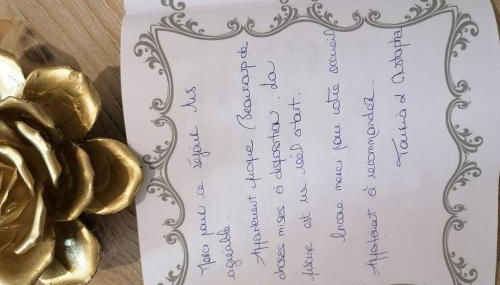 Merci pour ce séjour très
agréable.
Appartement propre, Beaucoup de
choses mises à disposition. La
pièce est un réel atout.
Encore merci pour votre accueil
Appartement à recommander.